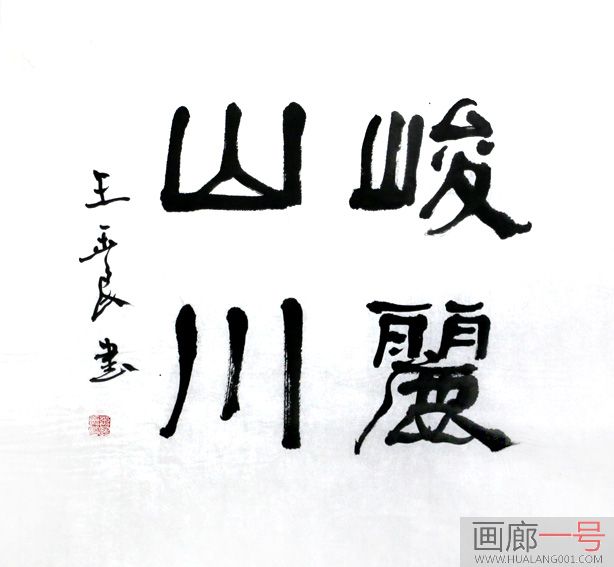 峻麗
山川
王玉良书
画廊一号
WWW.HUALANG001.COM